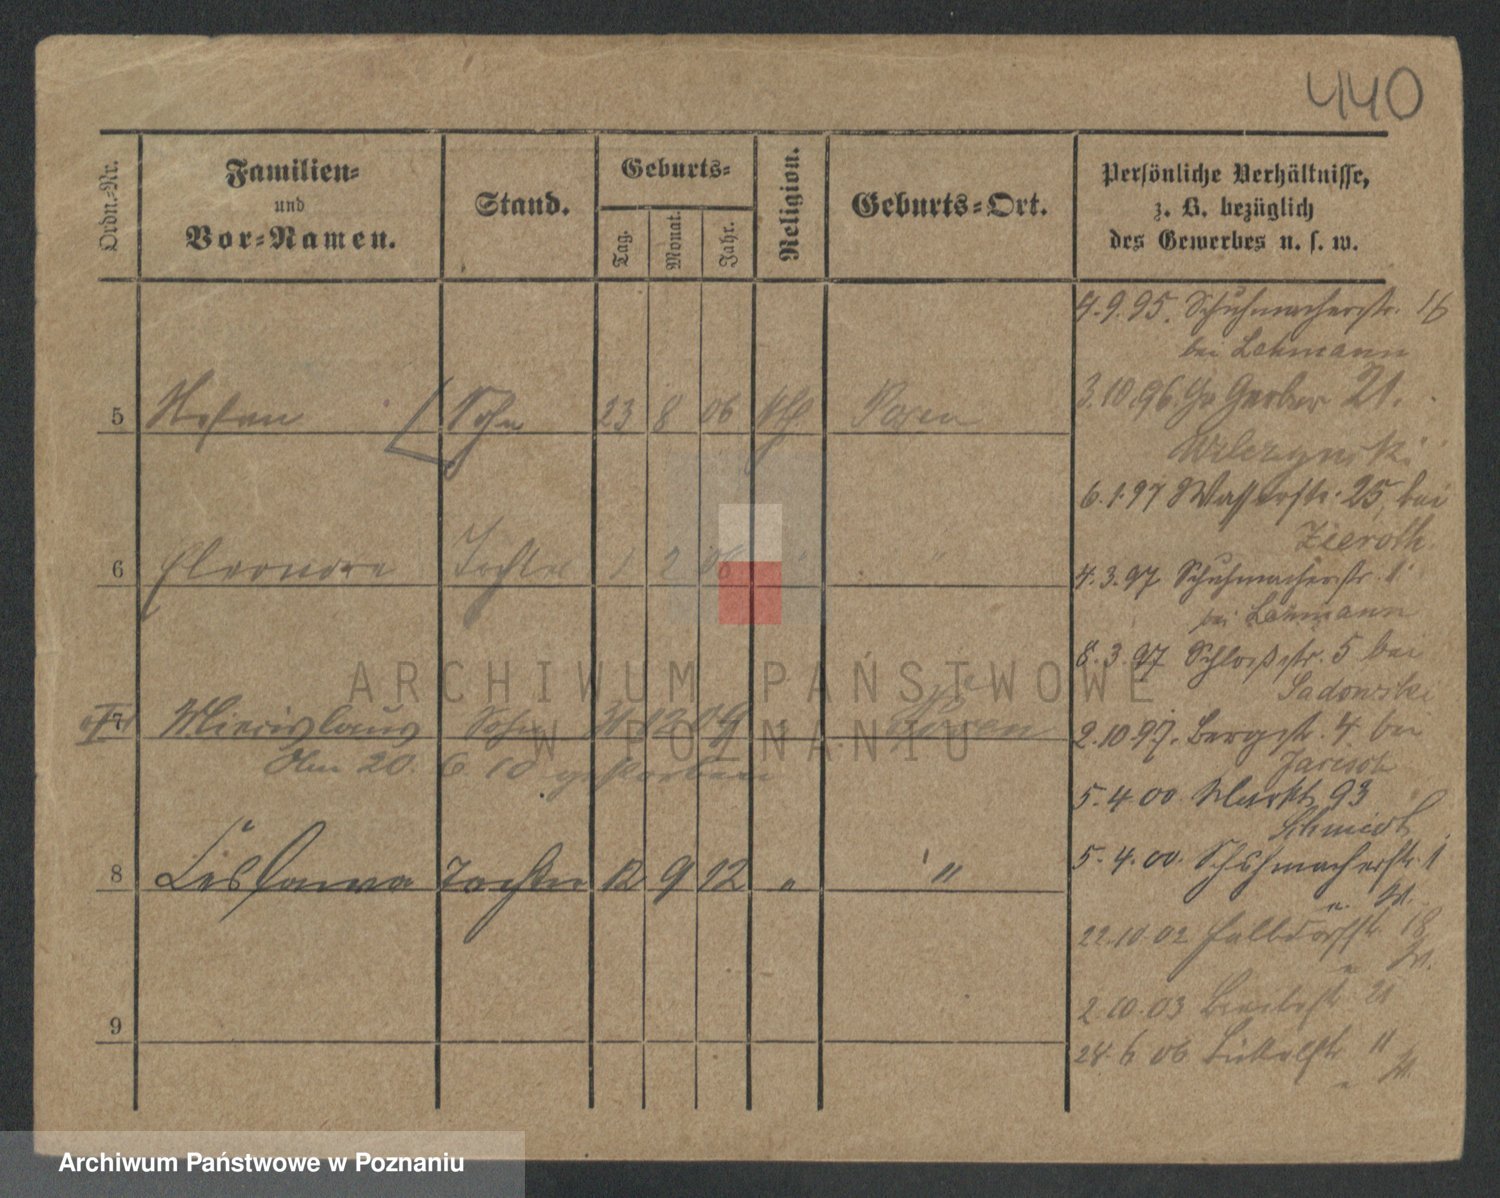 440
Ordn.-Nr.
Familien-
und
Vor-Namen.
Stand.
Geburts-
Tag.
Monat.
Jahr.
Religion.
Geburts-Ort.
Persönliche Verhältnisse,
z. B. bezüglich
des Gewerbes u. s. w.
5 Stefan Sohn 23 8 06 kth Posen
6 Eleonore Tochter 1 2 06 " "
7 Miecislaus Sohn 12 09 " Posen
Am 20. 6 10 gestorben
8 Česlawa Tochter 12 9 12 " "
9
4.9.95. Schuhmacherstr. 16
bei Lehmann
3.10.96. Gr Gerber 21.
Wilczynski
6.1.97 Wasserstr. 25, bei
Zieroth.
4.3.97 Schuhmacherstr. 1
bei Lehmann
8.3.97 Schloßstr. 5 bei
Sadowski
2.10.97. Bergstr. 4. bei
5.4.00. Markt 93
Schmidt
5.4.00. Schuhmacherstr. 1
22.10.02 Halbdorfstr 18
2.10.03 21
24.6.06 11
ARCHIWUM PAŃSTWOWE
W POZNANIU
Archiwum Państwowe w Poznaniu